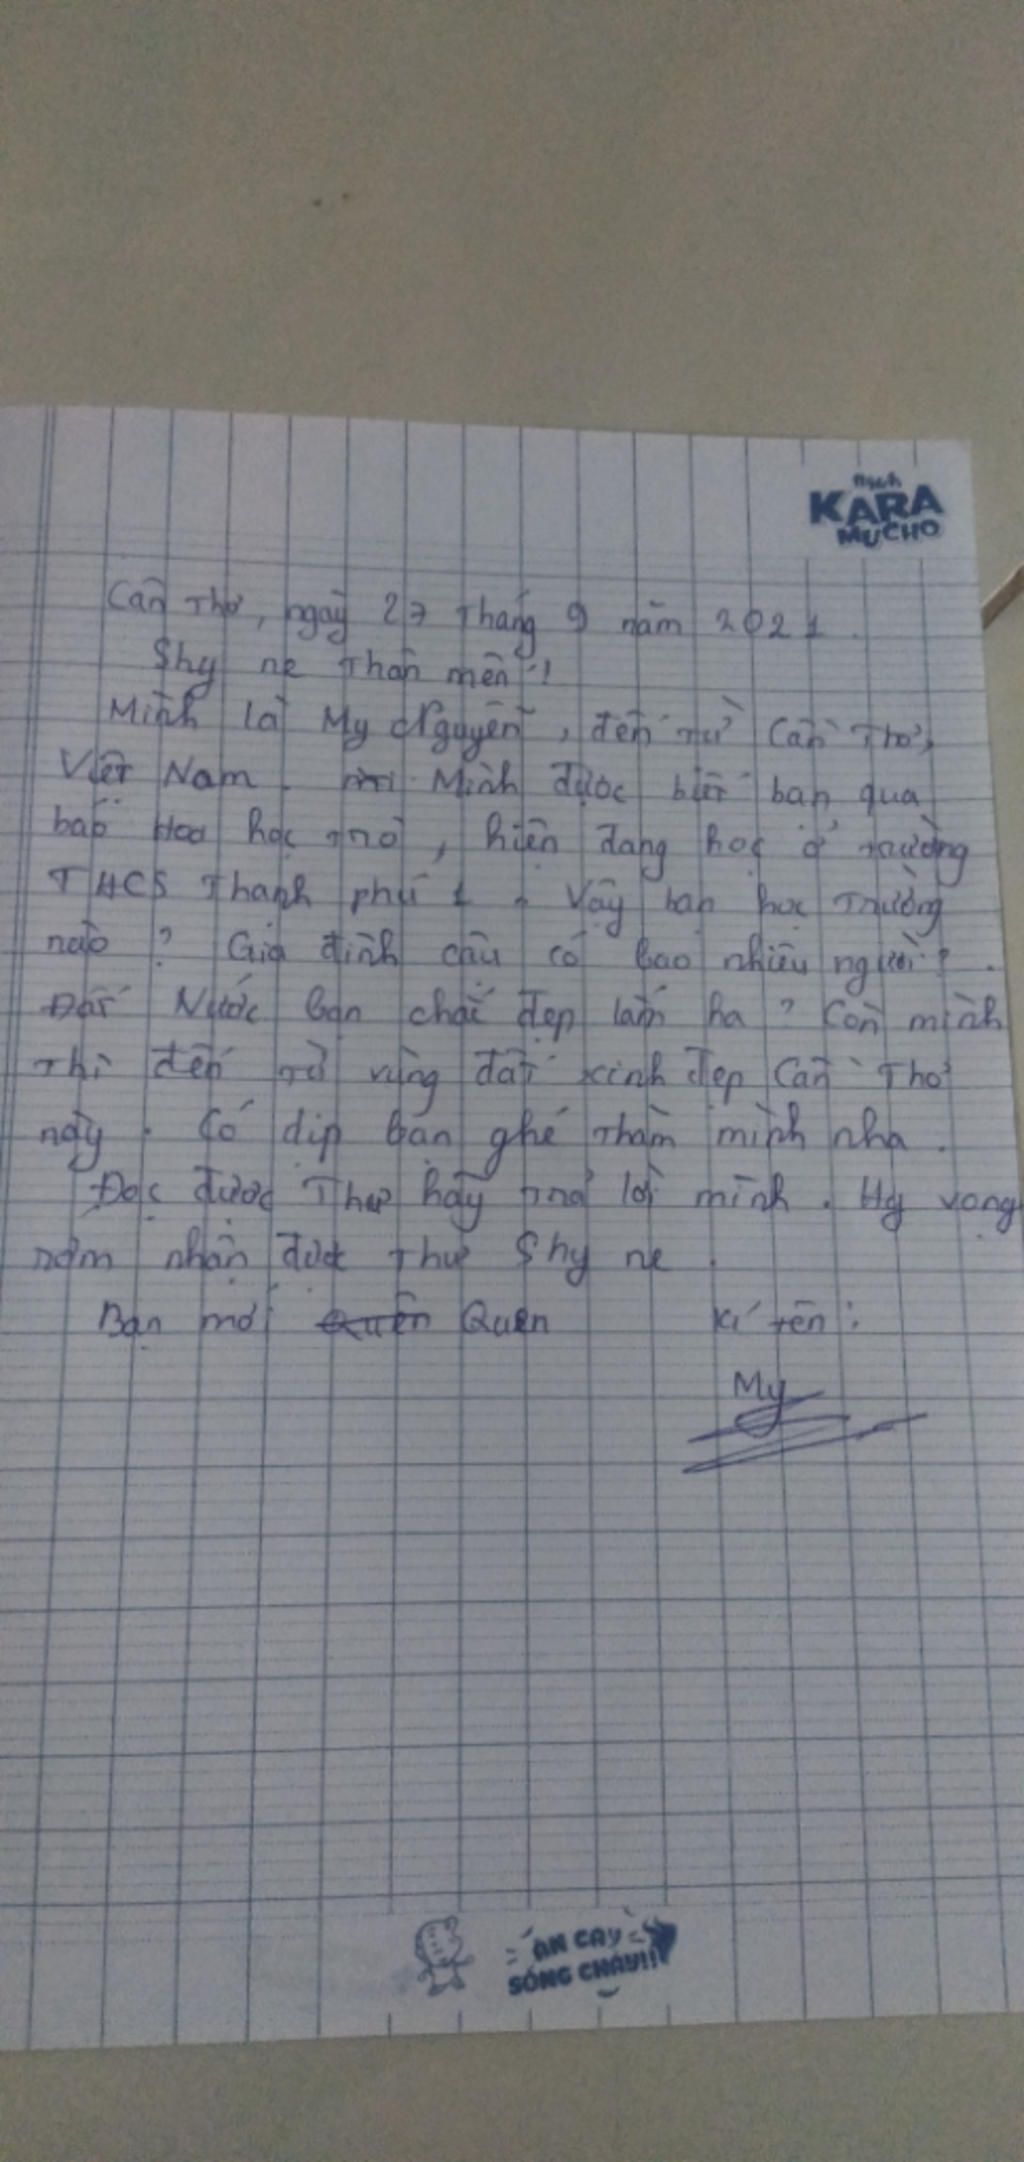 KARA
MUCHO
Cần Thơ, ngày 27 tháng 9 năm 2021.
Shy ne thân mến!
Mình là My Nguyễn, đến từ Cần Thơ,
Việt Nam. Mình được biết bạn qua
báo Hoa học trò, hiện đang học ở trường
THCS Thạnh phú 1. Vậy bạn học trường
nào? Gia đình cậu có bao nhiêu người?.
Đất Nước bạn chắc đẹp lắm ha? Còn mình
thì đến từ vùng đất xinh đẹp Cần Thơ
này. Có dịp bạn ghé thăm mình nha.
Đọc được Thư hãy trả lời mình. Hy vọng
sớm nhận được thư Shy ne.
Bạn mới Quen Kí tên:
My
ĂN CAY
SỐNG CHÁY!!